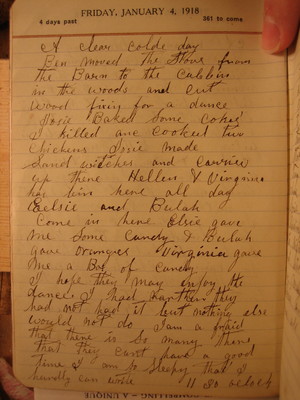 FRIDAY, JANUARY 4, 1918
4 days past 361 to come
A clear colde day
Ben moved the Stove from
the Barn to the Cabbin
in the woods and cut
wood fixing for a dance
Josie Baked Some Cakes
I killed and cooked two
chickens Josie made
Sand witches and carried
up there Hellen & Virginia
has bin here all day
Eelsie and Bulah
Come in here Elsie gave
me Some Candy & Bulah
gave oranges Virginia gave
me a Box of Candy
I hope they may enjoy the
dance I had rather they
had not had it but nothing else
would not do I am a fraid
that there is So many there
that they cant have a good
time I am So Sleepy that I
harndly can write 11 30 oclock
A UNIQUE